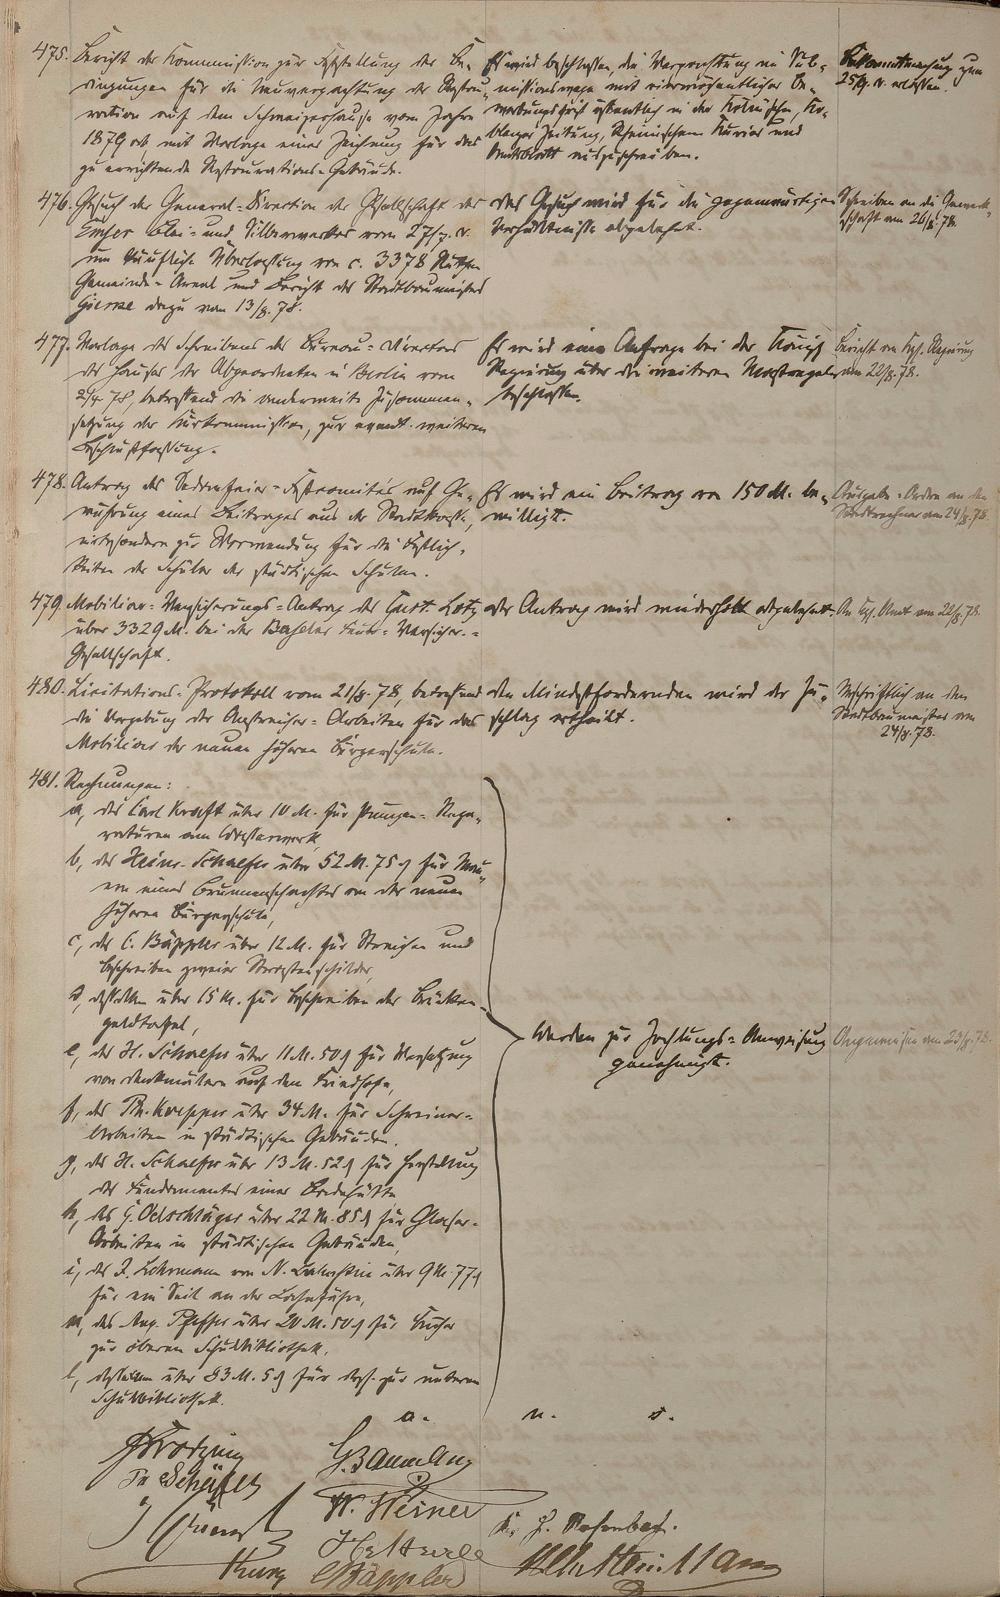 475. Bericht der Kommission zur Feststellung der Be-
dingungen für die Neuverpachtung der Restau-
ration auf dem Schweizerhause vom Jahre
1879 ab, mit Vorlage einer Zeichnung für das
zu errichtende Restaurations-Gebäude.
Es wird beschlossen, die Verpachtung im Sub-
missionswege mit vierwöchentlicher Be-
werbungsfrist öffentlich in der Kölnischen, Ko-
blenzer Zeitung, Rheinischen Kurier und
Amtsblatt auszuschreiben.
Bekanntmachung zum
erlassen.
476. Gesuch der General-Direction der Gesellschaft des
Emser Blei- und Silberwerkes vom 27/7. cr.
um käufliche Überlassung von c. 3378 Ruthen
Gemeinde-Areal und Bericht des Stadtbaumeisters
dazu vom 13/8. 78.
Das Gesuch wird für die gegenwärtigen
Verhältnisse abgelehnt.
Schreiben an die Gewerk-
schaft am 26/8. 78.
477. Vorlage des Schreibens des Bureau-Directors
des Hauses der Abgeordneten in Berlin vom
78, betreffend die anderweite Zusammen-
setzung der Kurkommission, zur event. weiteren
Beschlußfassung.
Es wird eine Anfrage bei der Königl.
Regierung über die weiteren Maßregeln
beschlossen.
Bericht an Kgl. Regierung
am 22/8. 78.
478. Antrag des Sedanfeier-Festcomités auf Ge-
währung eines Beitrages aus der Stadtkasse,
insbesondere zur Verwendung für die Festlich-
keiten der Schüler der städtischen Schulen.
Es wird ein Beitrag von 150 M. be-
willigt.
Ausgabe-Ordre an den
Stadtrechner am 24/8. 78.
479. Mobiliar-Versicherungs-Antrag des Gust. Lotz
über 3329 M. bei der Baseler Feuer-Versicher.-
Gesellschaft.
Der Antrag wird wiederholt abgelehnt.
An Kgl. Amt am 22/8. 78.
480. Licitations-Protokoll vom 21/8. 78, betreffend
die Vergebung der Anstreicher-Arbeiten für das
Mobiliar der neuen höheren Bürgerschule.
Den Mindestfordernden wird der Zu-
schlag ertheilt.
Abschriftlich an den
Stadtbaumeister am
24/8. 78.
481. Rechnungen:
a, des Carl Kraft über 10 M. für Pumpen-Repa-
raturen am
b, des Heinr. Schaefer über 52 M. 75 ₰ für Mau-
ern eines Brunnenschachtes an der neuen
höheren Bürgerschule,
c, des C. Bäppler über 12 M. für Streichen und
Beschreiben zweier Straßenschilder,
d, desselben über 15 M. für Beschreiben der Brücken-
geldtafel,
e, des H. Schaefer über 11 M. 50 ₰ für Versetzung
von Denkmälern auf dem Friedhofe,
f, des Ph. über 34 M. für Schreiner-
Arbeiten in städtischen Gebäuden,
g, des H. Schaefer über 13 M. 52 ₰ für Herstellung
des Fundamentes einer Badehütte
h, des G. Oelschläger über 22 M. 85 ₰ für Glaser-
Arbeiten in städtischen Gebäuden,
i, des J. Lehmann von N. Lahnstein über 9 M. 77 ₰
für ein Seil an der Lahnfähre,
k, des Aug. Pfeffer über 20 M. 50 ₰ für Bücher
zur oberen Schulbibliothek,
l, desselben über 83 M. 5 ₰ für desgl. zur unteren
Schulbibliothek.
Werden zur Zahlungs-Anweisung
genehmigt.
Angewiesen am 23/8. 78.
a. u. s.
Fr Schäfer
W. Werner
Bäppler